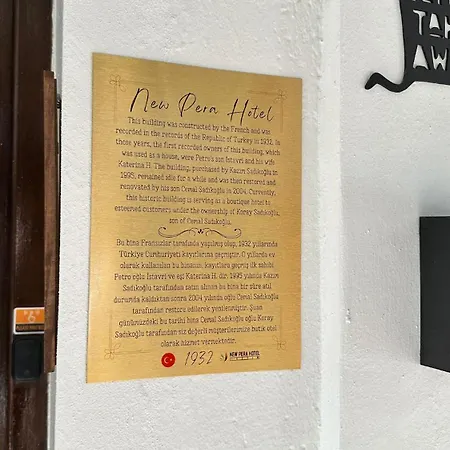 TAK
AW
New Pera Hotel
This building was constructed by the French and was
recorded in the records of the Republic of Turkey in 1932. In
those years, the first recorded owners of this building, which
was used as a house, were Petro's son Istavri and his wife
Katerina H. The building, purchased by Kazım Sadıkoğlu in
1995, remained idle for a while and was then restored and
renovated by his son Cemal Sadıkoğlu in 2004. Currently,
this historic building is serving as a boutique hotel to
esteemed customers under the ownership of Koray Sadıkoğlu,
son of Cemal Sadıkoğlu.
Bu bina Fransızlar tarafında yapılmış olup, 1932 yıllarında
Türkiye Cumhuriyeti kayıtlarına geçmiştir. O yıllarda ev
olarak kullanılan bu binanın, kayıtlara geçmiş ilk sahibi
Petro oğlu İstavri ve eşi Katerina H. dır. 1995 yılında Kazım
Sadıkoğlu tarafından satın alınan bu bina bir süre atıl
durumda kaldıktan sonra 2004 yılında oğlu Cemal Sadıkoğlu
tarafından restore edilerek yenilenmiştir. Şuan
günümüzdeki bu tarihi bina Cemal Sadıkoğlu oğlu Koray
Sadıkoğlu tarafından siz değerli müşterilerimize butik otel
olarak hizmet vermektedir.
1932
NEW PERA HOTEL